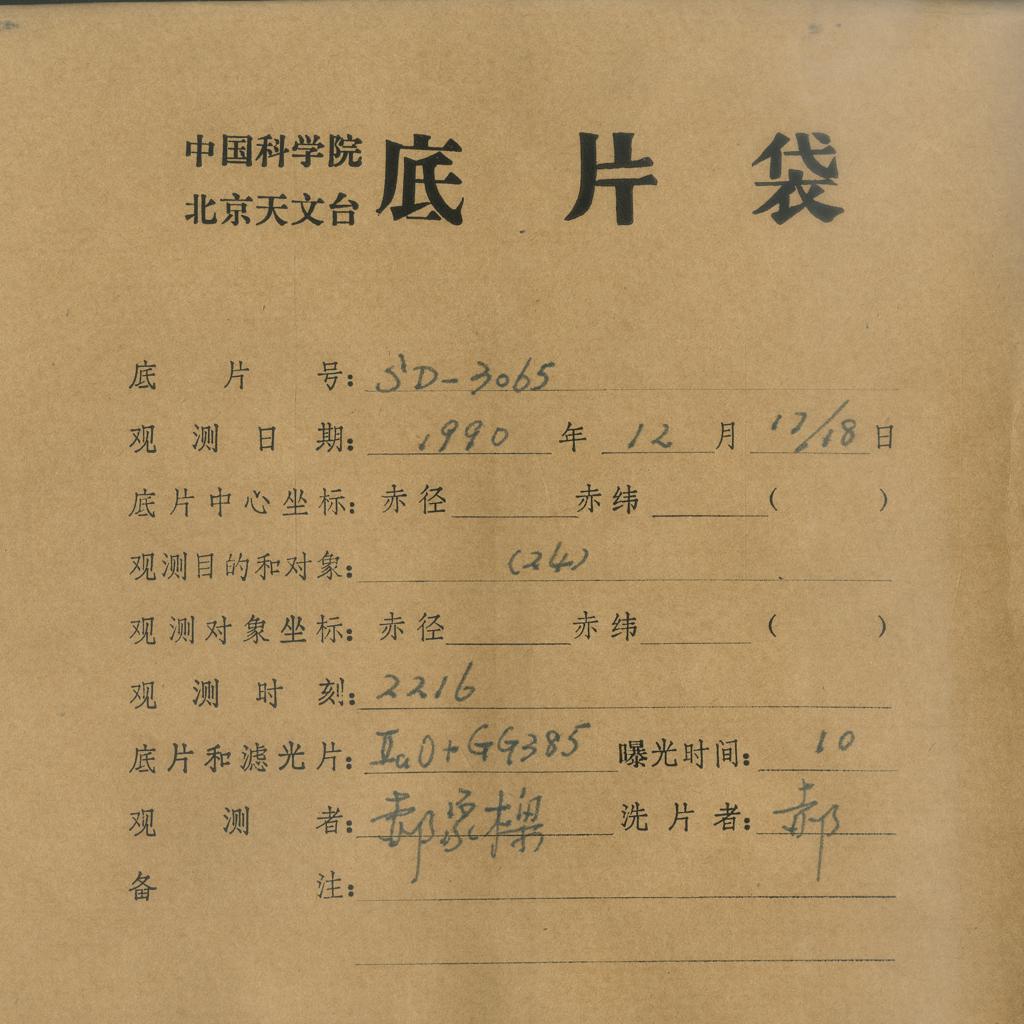 中国科学院
北京天文台 底片袋
底片号：SD-3065
观测日期：1990年12月17/18日
底片中心坐标：赤径 赤纬 （ ）
观测目的和对象：(24)
观测对象坐标：赤径 赤纬 （ ）
观测时刻：2216
底片和滤光片：ⅡaO+GG385 曝光时间：10
观测者：郝象樑 洗片者：郝
备注：